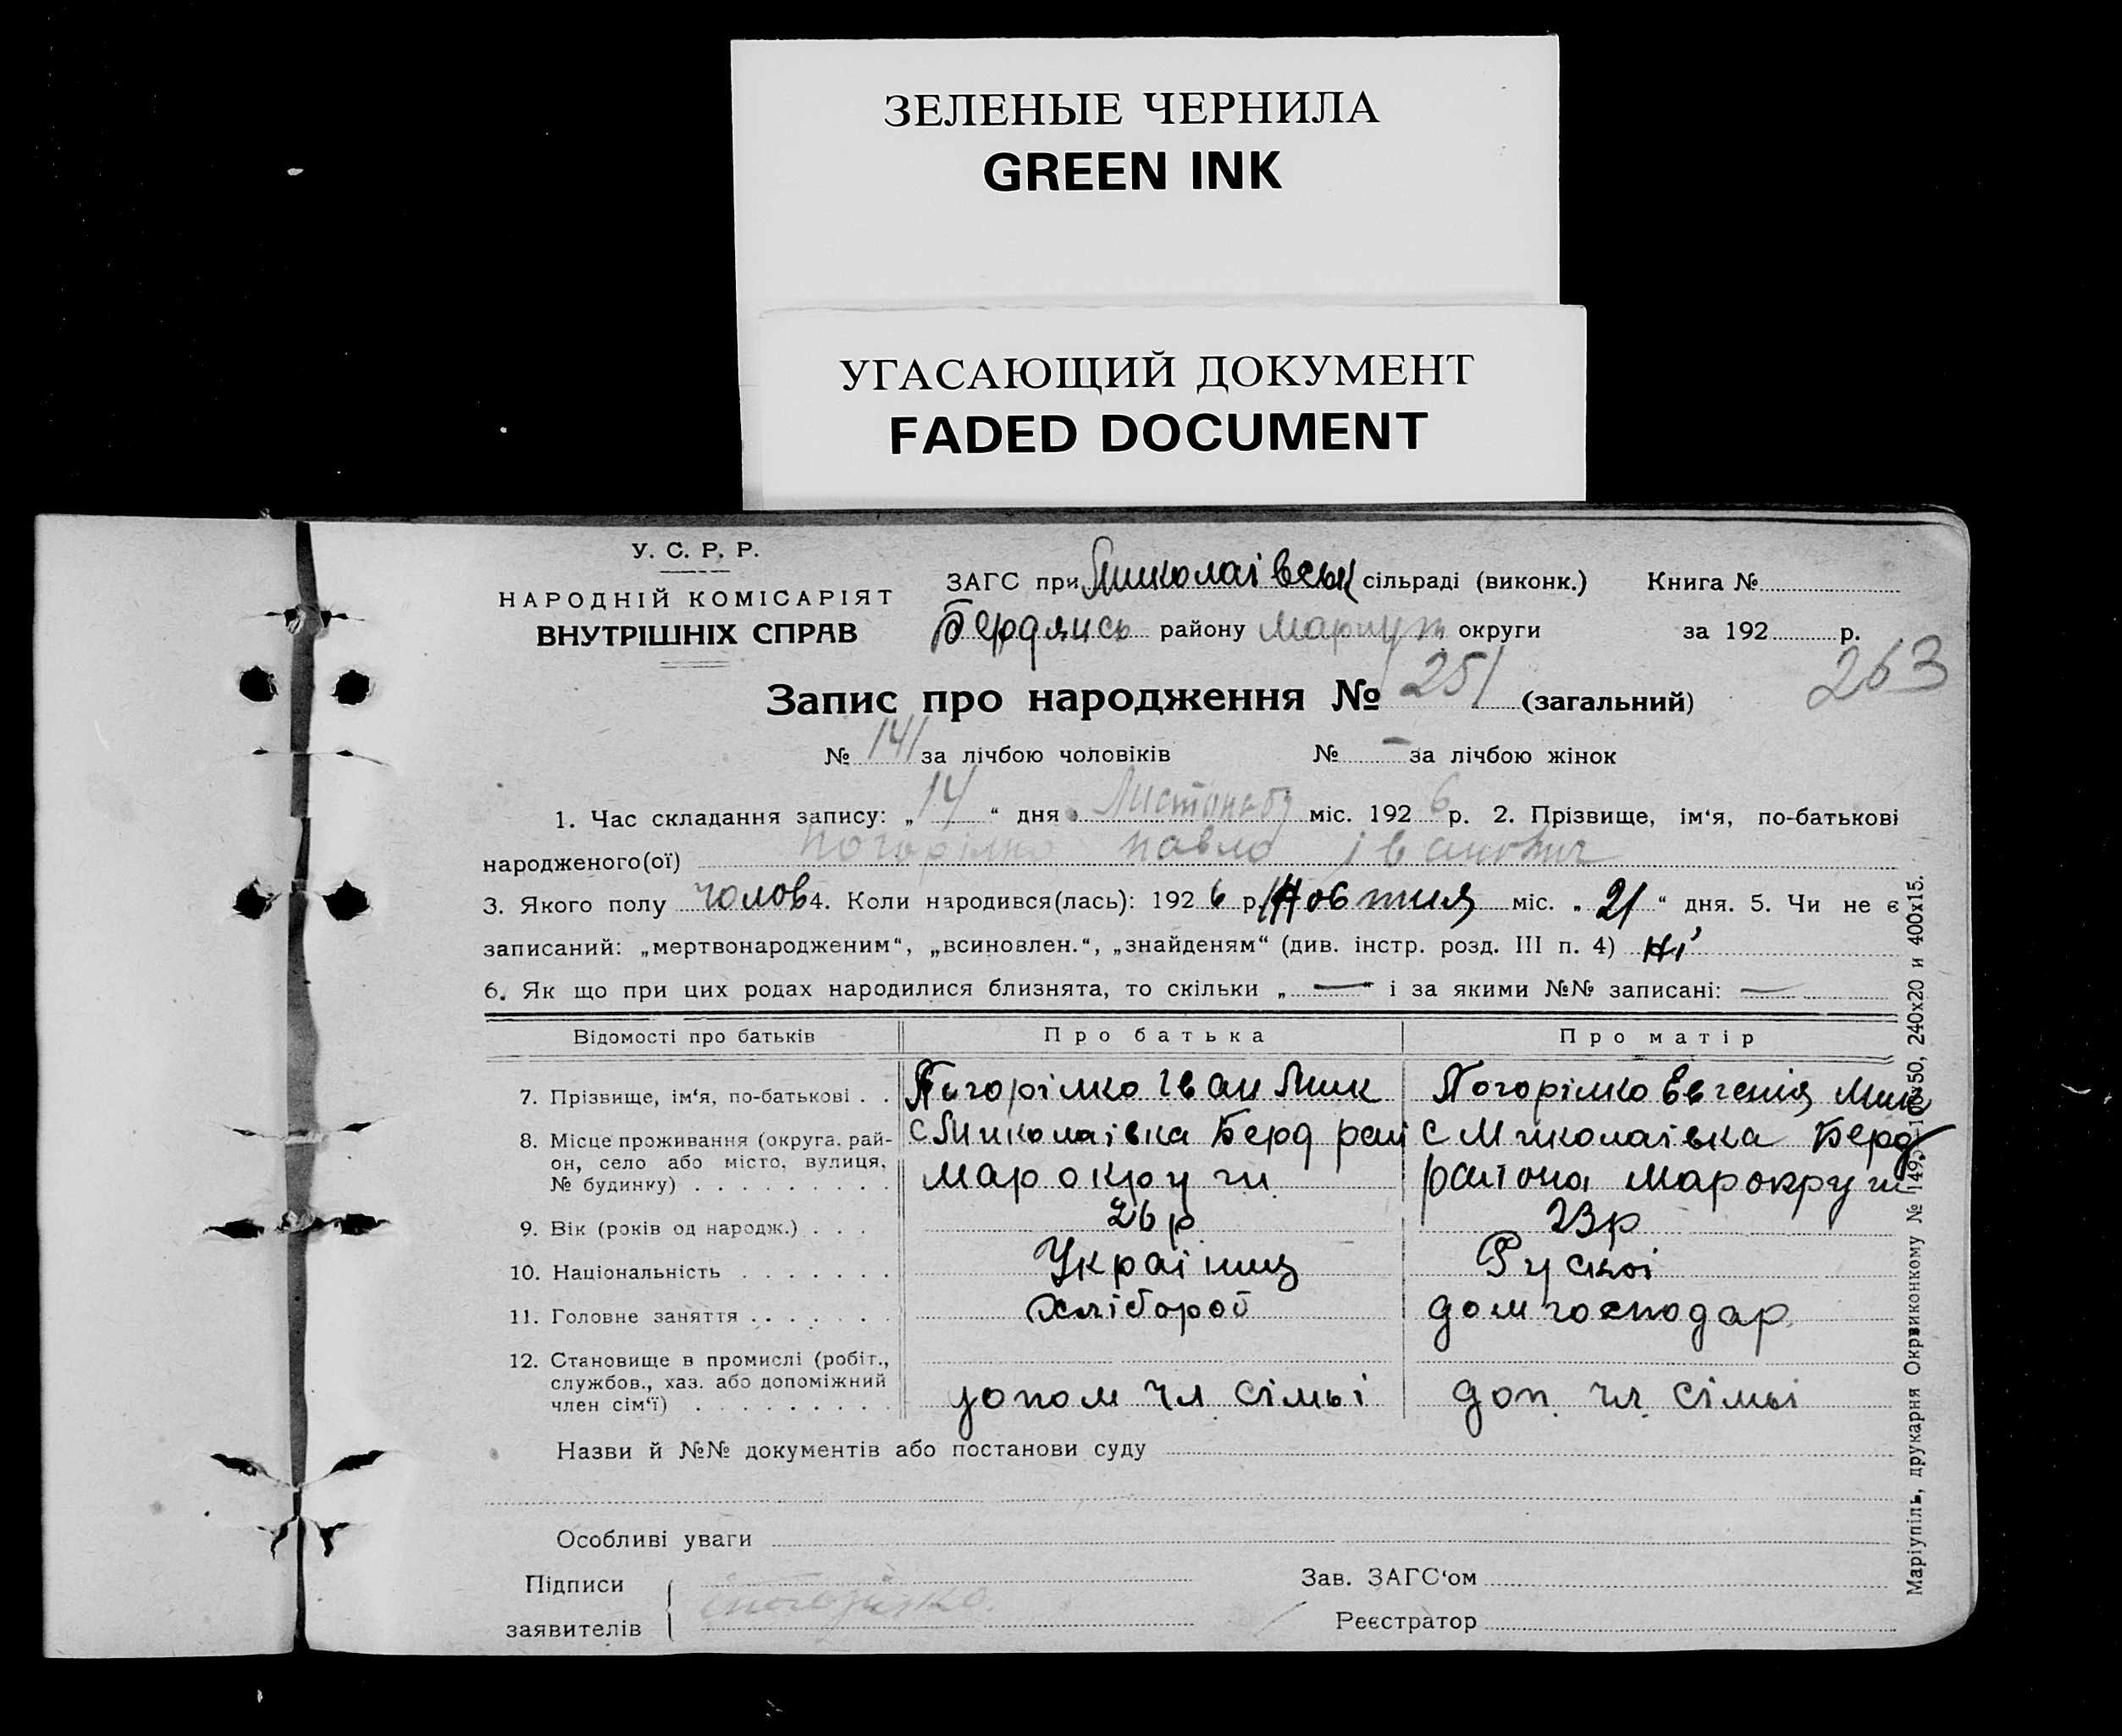 ЗЕЛЕНЫЕ ЧЕРНИЛА
GREEN INK
УГАСАЮЩИЙ ДОКУМЕНТ
FADED DOCUMENT
У. С. Р. Р.
НАРОДНІЙ КОМІСАРІЯТ
ВНУТРІШНІХ СПРАВ
ЗАГС при Миколаівськ сільраді (виконк.) Книга №
Бердянсь району Мариуп округи за 192 р.
263
Запис про народження № 251 (загальний)
№ 141 за лічбою чоловіків № — за лічбою жінок
1. Час складання запису: „ 14 “ дня Листопаду міс. 192 6 р. 2. Прізвище, ім‘я, по-батькові
народженого(ої) Погорілко Павло Іванович
3. Якого полу чолов 4. Коли народився(лась): 192 6 р. Жовтня міс. „ 21 “ дня. 5. Чи не є
записаний: „мертвонародженим“, „всиновлен.“, „знайденям“ (див. інстр. розд. III п. 4) Ні
6. Як що при цих родах народилися близнята, то скільки „ — “ і за якими №№ записані: —
Відомості про батьків Про батька Про матір
7. Прізвище, ім‘я, по-батькові . . Погорілко Іван Мик Погорілко Евгенія Мик
8. Місце проживання (округа, рай- с Миколаівка Берд рай с Миколаівка Берд
он, село або місто, вулиця,
№ будинку) . . . . . . . . . Мар округи района Марокруги
9. Вік (років од народж.) . . . 26 р 23 р
10. Національність . . . . . . . Українц Рускоі
11. Головне заняття . . . . . . . Хлібороб дом господар
12. Становище в промислі (робіт.,
службов., хаз. або допоміжний
член сім‘ї) . . . . . . . . . допом чл сімьі доп. чл. сімьі
Назви й №№ документів або постанови суду
Особливі уваги
Підписи
заявителів
Зав. ЗАГС‘ом
Реєстратор
Маріупіль, друкарня Окрвиконкому № 1493-10x50, 240x20 и 400x15.